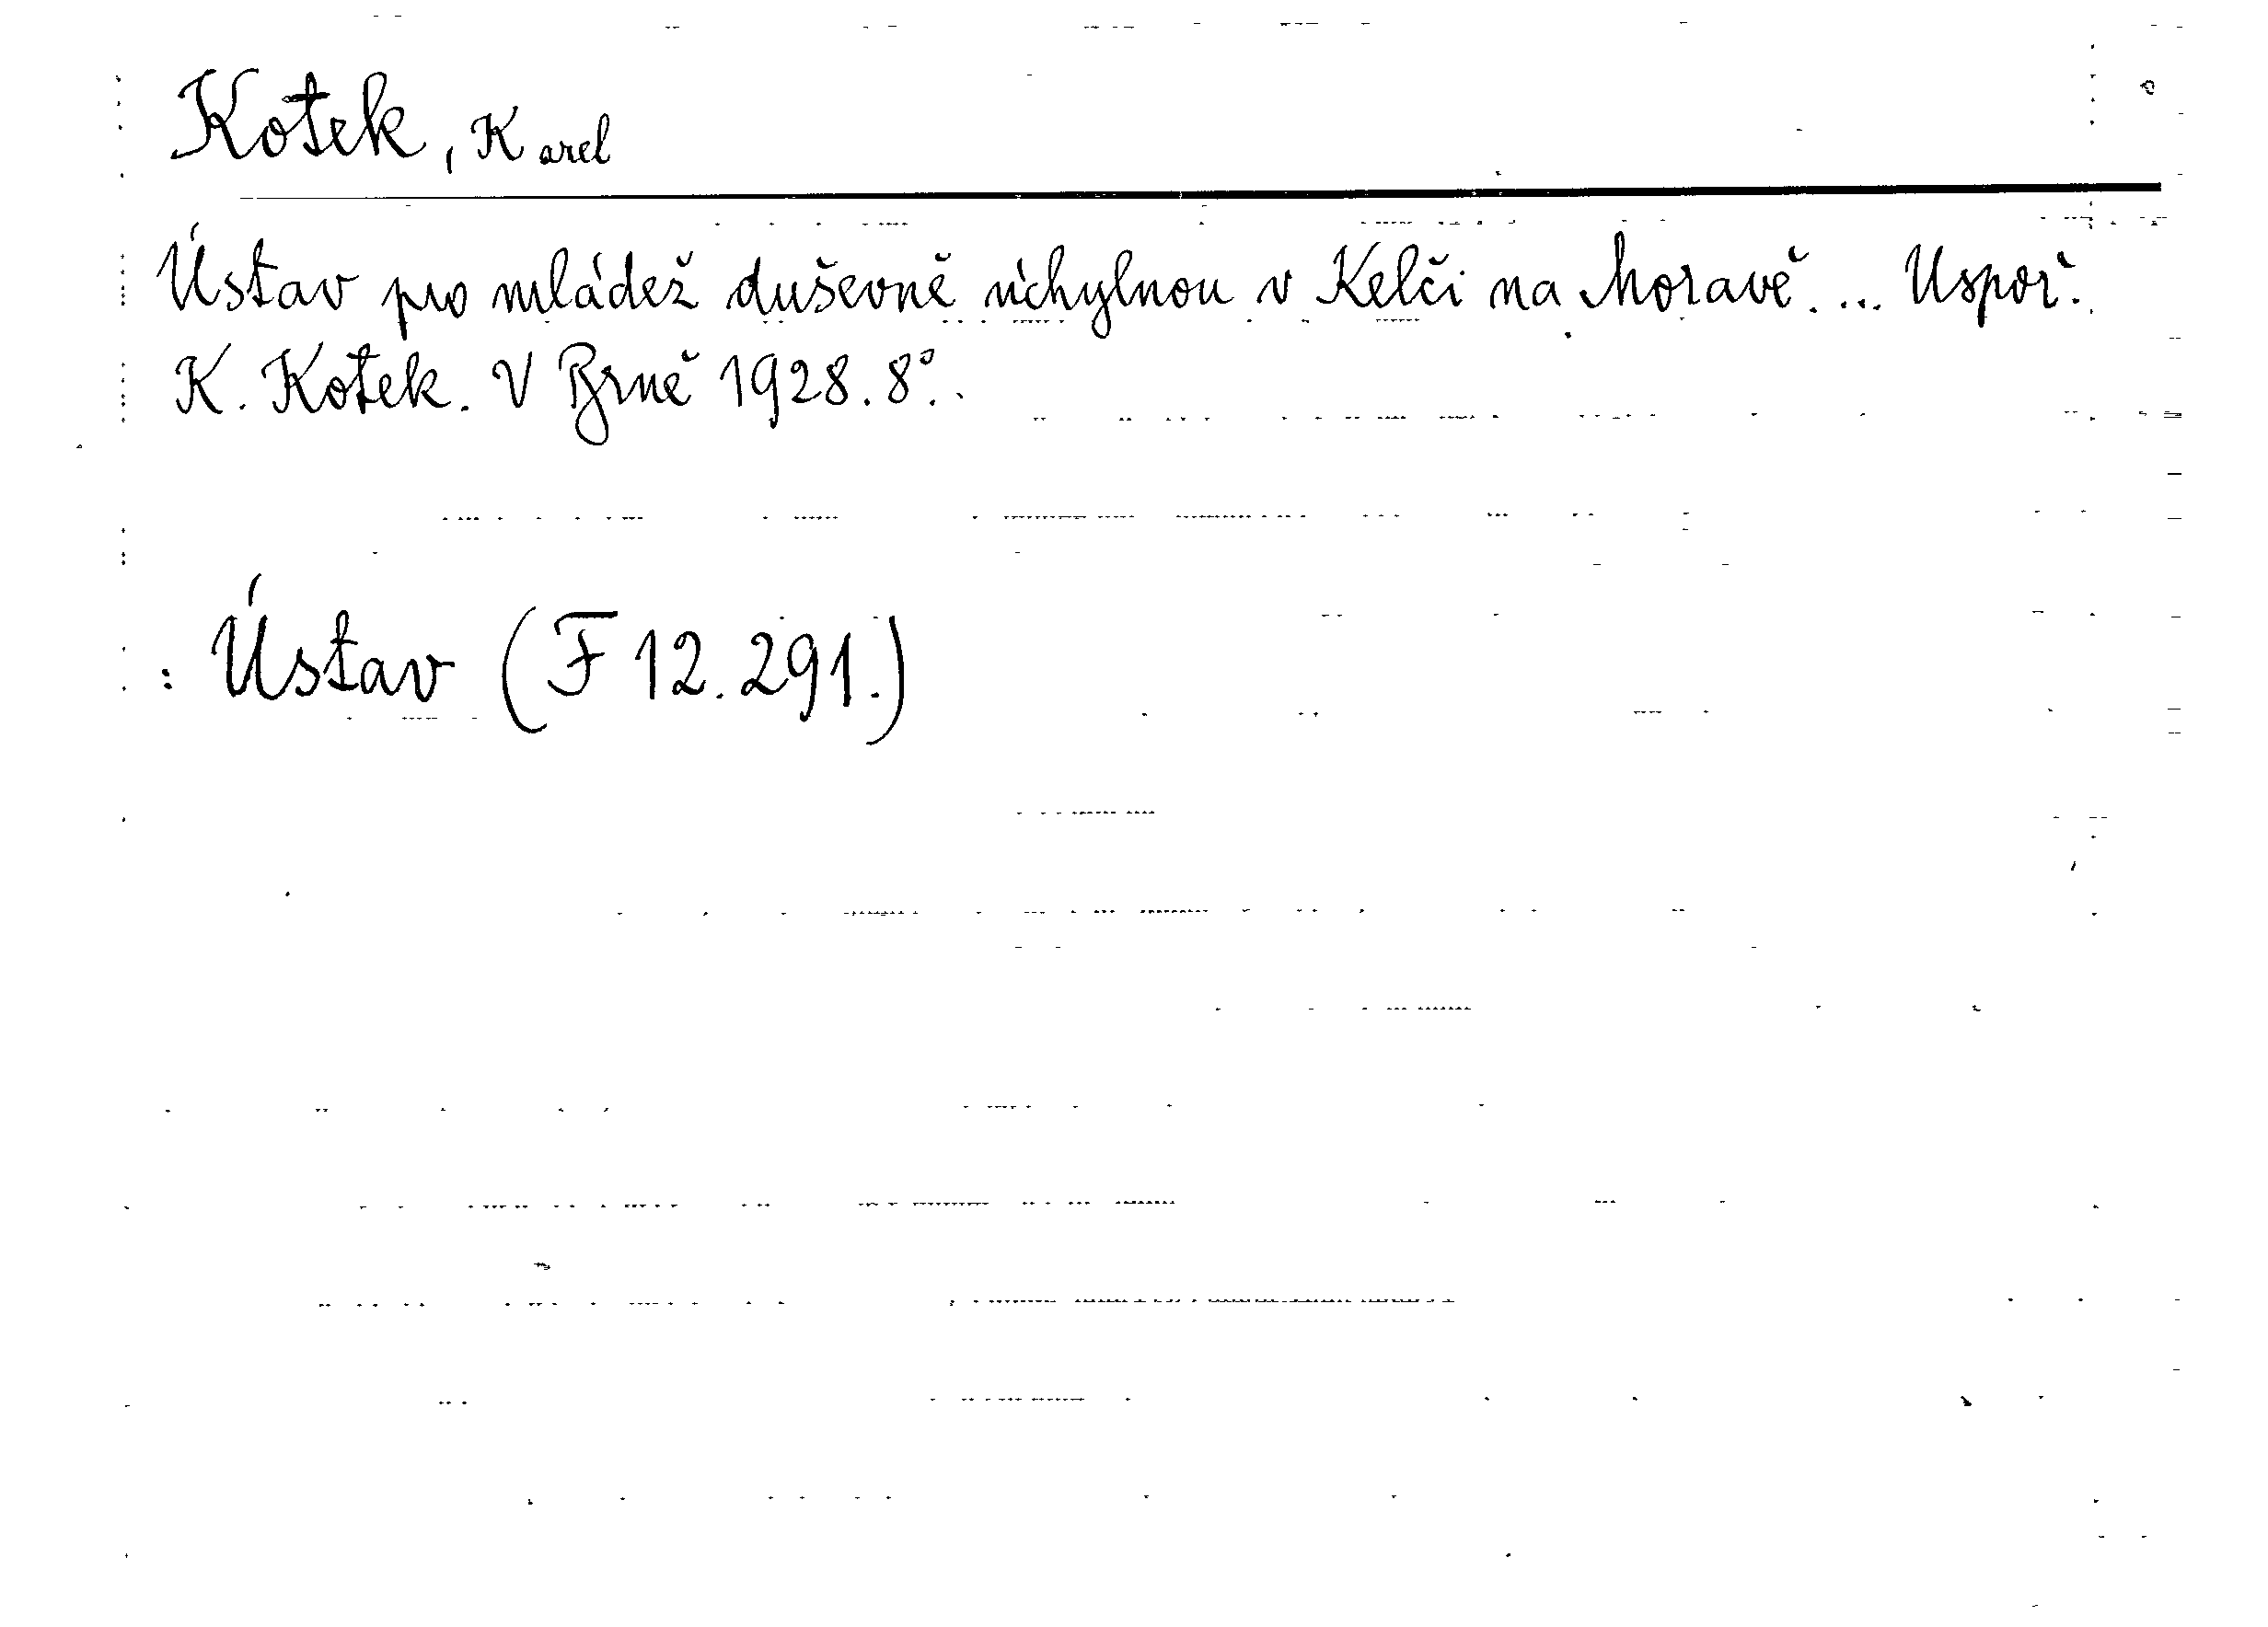 Kotek, Karel
Ústav pro mládež duševně úchylnou v Kelči na Moravě. ... Uspoř.
K. Kotek. V Brně 1928. 8°.
: Ústav (F 12.291.)